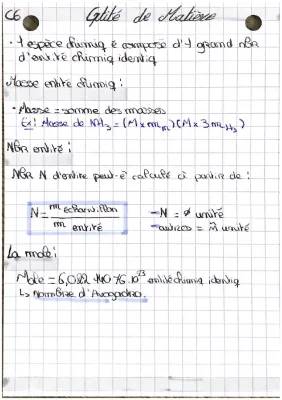 C6 Qtité de Matière
• 1 espèce chimiq é composé d'1 grand nbr
d'entité chimiq identiq
Masse entité chimiq :
• Masse = somme des masses
Ex: Masse de NH3 = (1 x m) (1 x 3 mH)
Nbr entité :
Nbr N d'entité peut-ê calculé à partir de :
N = m échantillon / m entité
- N = ø unité
- autres = m̂ unité
La mole :
Mole = 6,022 140 76.10^23 entité chimiq identiq
↳ Nombre d'Avogadro.